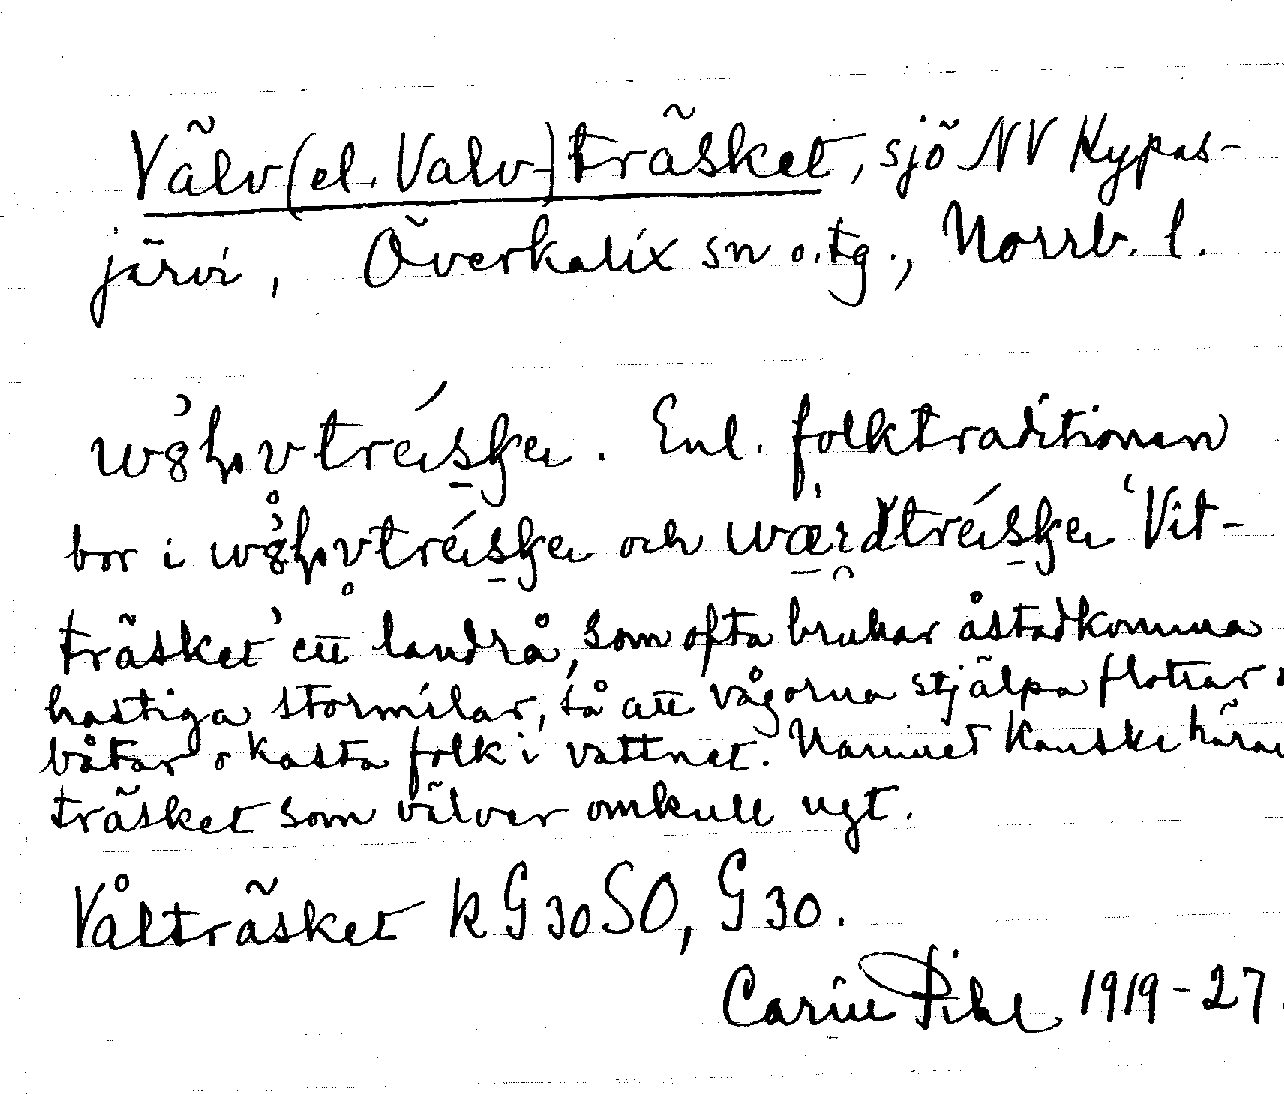 Välv(el. Valv-)träsket, sjö NV Hypas-
järvi, Överkalix sn o. tg., Norrb. l.
. Enl. folktraditionen
bor i och 'Vit-
träsket' ett landrå, som ofta brukar åstadkomma
hastiga stormilar, så att vågorna stjälpa flottar o
båtar o kasta folk i vattnet. Namnet kanske härav
träsket som välver omkull ngt.
Vålträsket k G30SO, G30.
Carin Pihl 1919-27.